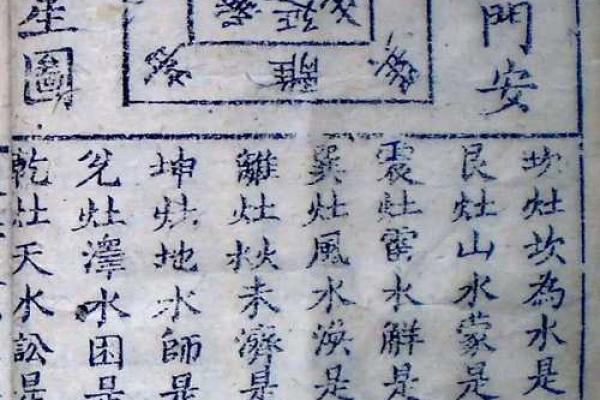 門安
離
延
星圖
坎灶坎為水是
艮灶山水蒙是
震灶雷水解是
巽灶風水渙是
離灶未濟是
坤灶地水師是
兌灶澤水困是
乾灶天水訟是